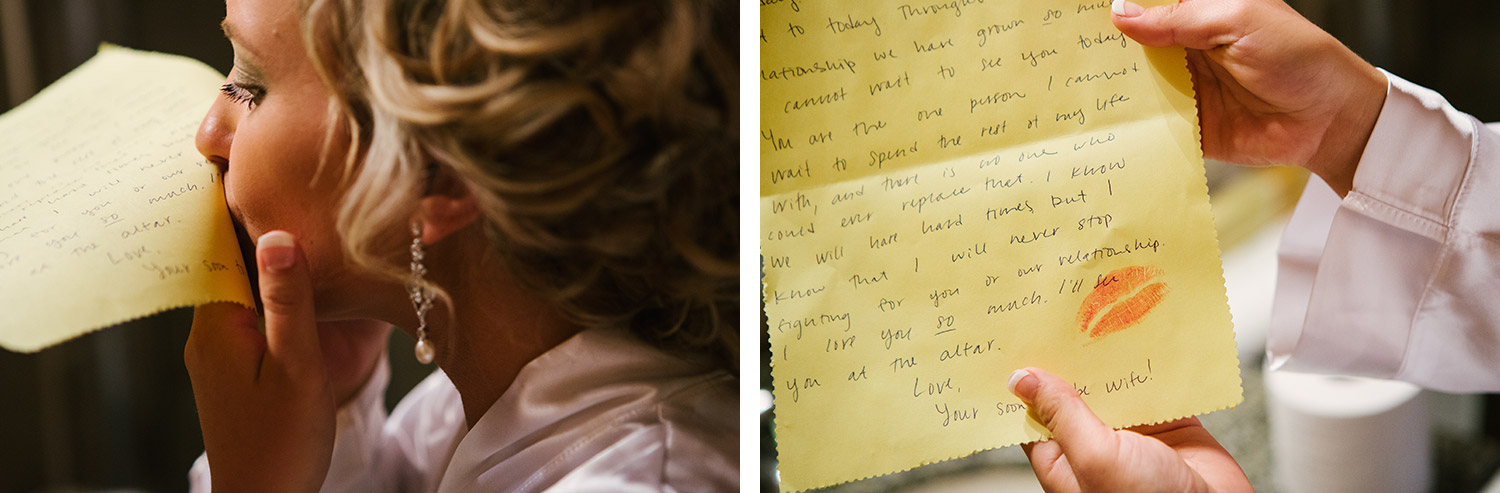 will never
you or our
you so much.
at the altar.
Love,
Your soon
to today
relationship we have grown so
cannot wait to see you today
You are the one person I cannot
wait to spend the rest of my life
with, and there is no one who
could ever replace that. I know
we will have hard times, but I
know that I will never stop
fighting for you or our relationship.
I love you so much. I'll see
you at the altar.
Love,
Your soon be wife!